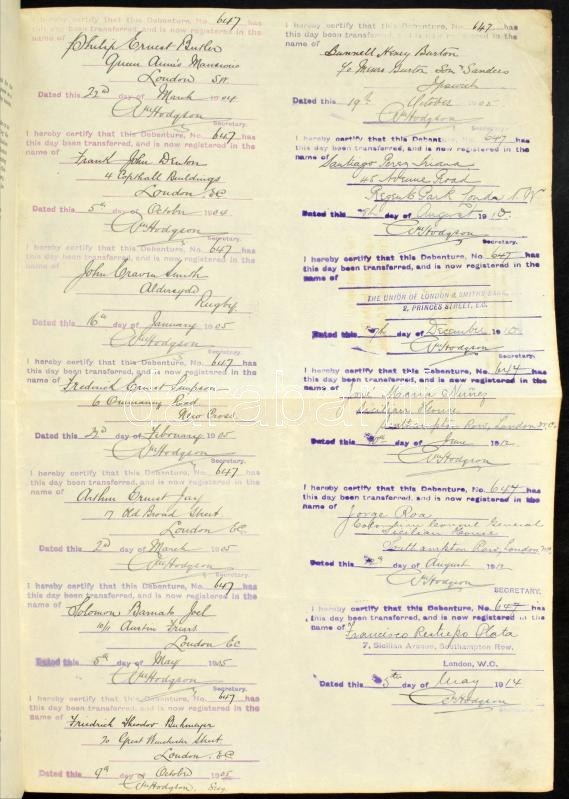 I hereby certify that this Debenture, No. 647 has
this day been transferred, and is now registered in the
name of
Philip Ernest Butler
Queen Anne's Mansions
London SW
Dated this 23rd day of March 1904
Wm Hodgson
Secretary.
I hereby certify that this Debenture, No. 647 has
this day been transferred, and is now registered in the
name of
Frank John Denton
4 Copthall Buildings
London. EC
Dated this 5th day of October 1904
Wm Hodgson
Secretary.
I hereby certify that this Debenture, No. 647 has
this day been transferred, and is now registered in the
name of
John Craven Smith
Aldersyde
Rugby.
Dated this 16th day of January 1905
Wm Hodgson
Secretary.
I hereby certify that this Debenture, No. 647 has
this day been transferred, and is now registered in the
name of
Frederick Ernest Simpson
6 Road
New Cross
Dated this day of February 1905
Wm Hodgson
Secretary.
I hereby certify that this Debenture, No. 647 has
this day been transferred, and is now registered in the
name of
Arthur Ernest Jay
17 Old Broad Street
London EC.
Dated this 2nd day of March 1905
Wm Hodgson
Secretary.
I hereby certify that this Debenture, No. 647 has
this day been transferred, and is now registered in the
name of
Solomon Barnato Joel
10/11 Austin Friars
London EC
Dated this 5th day of May 1905
Wm Hodgson
Secretary.
I hereby certify that this Debenture, No. 647 has
this day been transferred, and is now registered in the
name of
Friedrich Theodor
70 Great Winchester Street
London. EC
Dated this 9th day of October 1905
Wm Hodgson Secy
I hereby certify that this Debenture, No. 647 has
this day been transferred, and is now registered in the
name of
Bunnell Henry Burton
c/o Messrs Burton Son & Sanders
Ipswich
Dated this 19th October 1905
Wm Hodgson
Secretary.
I hereby certify that this Debenture, No. 647 has
this day been transferred, and is now registered in the
name of
Santiago Perez Triana
45 Avenue Road
Regents Park London N.W
Dated this day of August 1910.
Wm Hodgson
Secretary.
I hereby certify that this Debenture, No. 647 has
this day been transferred, and is now registered in the
name of
THE UNION OF LONDON & SMITHS BANK
2, PRINCES STREET, E.C.
Dated this day of December 1910.
Wm Hodgson
Secretary.
I hereby certify that this Debenture, No. 647 has
this day been transferred, and is now registered in the
name of
Jose Maria Nuñez
Sicilian House
Southampton Row, London W.C.
Dated this day of June 1912
Wm Hodgson
I hereby certify that this Debenture, No. 647 has
this day been transferred, and is now registered in the
name of
Jorge Roa
Colombian Consul General
Sicilian House
Southampton Row, London W.C.
Dated this day of August 1912
Wm Hodgson
SECRETARY.
I hereby certify that this Debenture, No. 647 has
this day been transferred, and is now registered in the
name of
Francisco Restrepo Plata
7, Sicilian Avenue, Southampton Row.
London, W.C.
Dated this 5th day of May 1914
Wm Hodgson
Secretary.